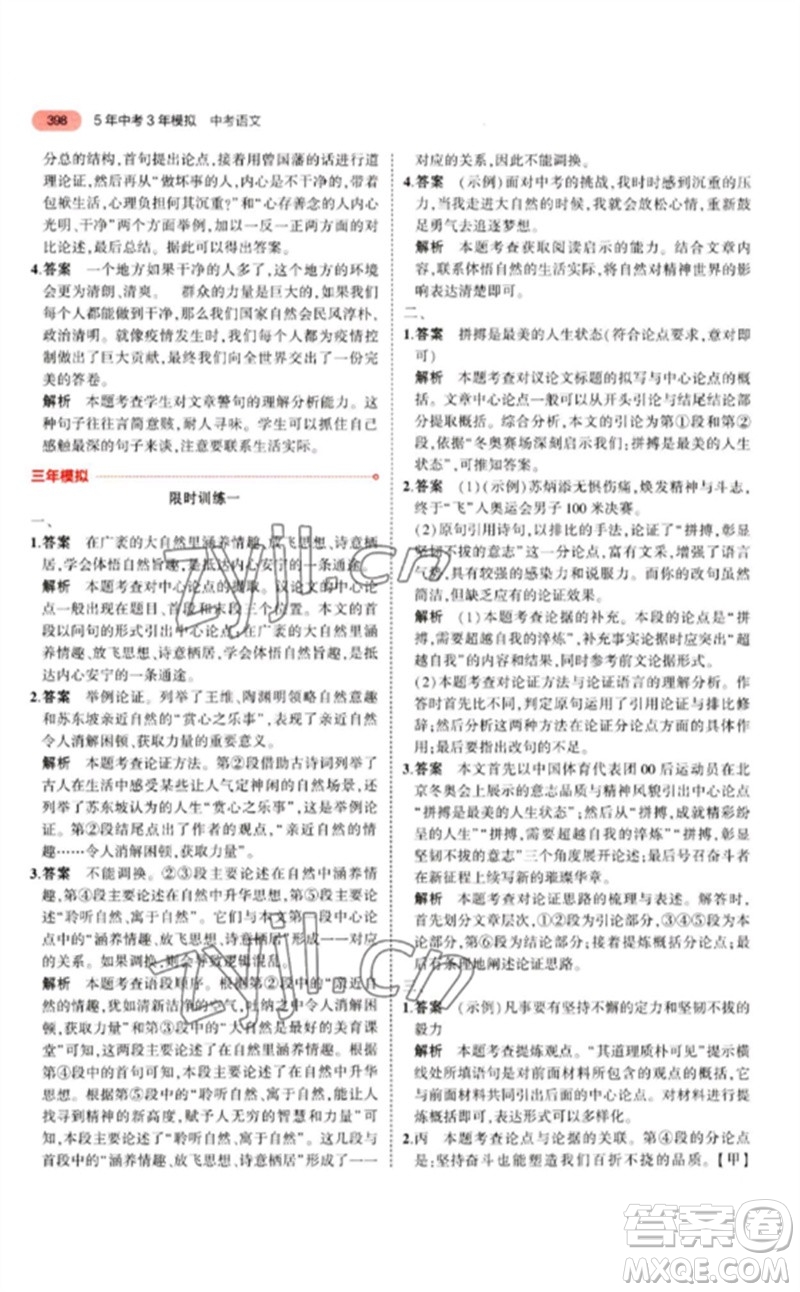 398 5年中考3年模拟 中考语文
分总的结构,首句提出论点,接着用曾国藩的话进行道
理论证,然后再从“做坏事的人,内心是不干净的,带着
包袱生活,心理负担何其沉重?”和“心存善念的人内心
光明、干净”两个方面举例,加以一反一正两方面的对
比论述,最后总结。据此可以得出答案。
4.答案 一个地方如果干净的人多了,这个地方的环境
会更为清朗、清爽。 群众的力量是巨大的,如果我们
每个人都能做到干净,那么我们国家自然会民风淳朴,
政治清明。就像疫情发生时,我们每个人都为疫情控
制做出了巨大贡献,最终我们国家就取得了近乎完美
的答卷。
解析 本题考查学生对文章警句的理解分析能力。这
种句子往往含义丰富、耐人寻味。学生可以抓住自己
感触最深的句子来谈,注意要联系生活实际。
三年模拟
限时训练一
一、
1.答案 在广袤的大自然里涵养情趣、放飞思想、诗意栖
居,是学会体味自然旨趣、获取内心安宁的一条通途。
解析 本题考查对中心论点的提取。议论文的中心论
点一般出现在题目、首段和末段三个位置。本文的首
段以问句的形式引出中心论点,在广袤的大自然里涵
养情趣、放飞思想、诗意栖居,是学会体味自然旨趣、获
取内心安宁的一条通途。
2.答案 举例论证。列举了王维、陶渊明领略自然意趣
和苏东坡亲近自然的“赏心之乐事”,表现了亲近自然
令人消解困顿、获取力量的效果。
解析 本题考查论证方法。第②段借助古诗词列举了
古人在生活中做过哪些让人气定神闲的有趣之事,还
列举了苏东坡从自然中获得“赏心之乐事”,这是举例
论证。第②段结尾点出了作者的观点,“亲近自然的情
趣……令人消解困顿、获取力量”。
3.答案 不能调换。②③段主要论述在自然中涵养情
趣,第④段主要论述在自然中升华思想,第⑤段主要论
述在“聆听自然,寓于自然”。它们与本文的中心论
点中的“涵养情趣、放飞思想、诗意栖居”形成一一对应
的关系。如果调换,会导致逻辑混乱。
解析 本题考查语段顺序。根据第②段中的“亲近自然
情趣,犹如清新洁净的空气,吐纳之中令人消解困顿、
获取力量”和第③段中的“大自然是最好的美育课
堂”可知,这两段主要论述在自然中涵养情趣。根据
第④段中的“大自然是一部哲思隽永的巨著,能让人们
找寻到精神的富足,赋予人无穷的智慧和力量”可知,
此段主要论述在自然中升华思想。第⑤段主要论述的
是“聆听自然,寓于自然”。这几段与
首段中的“涵养情趣、放飞思想、诗意栖居”形成一一
对应的关系,因此不能调换。
4.答案 (示例)面对中考的挑战,我时时感到沉重的压
力,当我走进大自然的时候,我就会放松心情,重新鼓
足勇气去追逐梦想。
解析 本题考查获取阅读启示的能力。结合文章内
容,联系体悟自然的生活实际,将对精神世界的影
响表达清楚即可。
二、
1.答案 拼搏是最美的人生状态(符合论点要求,意对即
可)
解析 本题考查对议论文标题的拟写与中心论点的概
括。文章中心论点一般可以从引论与结尾结论部分
概括提炼。综合分析,本文的引论为第①段和第②
段,依据“冬奥赛场深刻启示我们:拼搏是最美的人生
状态”,可推知答案。
2.答案 (1)(示例)苏炳添无惧伤痛,焕发精神,突破自我,
终于“飞”入奥运会男子100米决赛。
(2)原句引用诗句,以排比的手法,论证了“拼搏,彰显
坚韧不拔的意志”这一分论点,富有文采,増强语言气
势,具有较强的感染力和说服力。而改句虽然简洁,
但缺乏应有的论证效果。
解析 (1)本题考查论据的补充。本段的论点是“拼
搏,需要超越自我的淬炼”,补充事实论据时应突出
“超越自我”的内容,同时参考前文论据形式。
(2)本题考查对论证方法与论证语言的理解分析。作
答时首先要判定原句运用了引用论证与排比修
辞;然后分析这两种方法在论证分论点方面的具体作
用;最后指出改句的不足。
3.答案 本文首先以中国体育代表团00后运动员在北
京冬奥会上展示的意志品质与精神风貌引出中心论点
“拼搏是最美的人生状态”;然后从“拼搏,成就精彩纷
呈的人生”“拼搏,需要超越自我的淬炼”“拼搏,彰显
坚韧不拔的意志”三个角度展开论述;最后号召奋斗者
在新征程上续写新的璀璨华章。
解析 本题考查对论证思路的梳理与表述。作答时,
首先划分文章层次,①②段为引论部分,③④⑤段为
本论部分,第⑥段为结论部分;接着提炼分论点内容,最
后有条理地阐述论证思路。
三、
1.答案 (示例)凡事要有坚持不懈的定力和坚韧不拔的
毅力
解析 本题考查提炼观点。“其道理质朴可见”提示横
线处所填语句是对前面材料所包含的观点的概括,它
与前面材料共同引出后面的中心论点。对材料进行提
炼概括即可,表述形式可以多样化。
2.丙 本题考查论点与论据的关联。第④段的分论点
是:坚持奋斗也能塑造我们百折不挠的品质。【甲】
zyjl.cn
zyjl.cn
答案圈
MXQE.COM